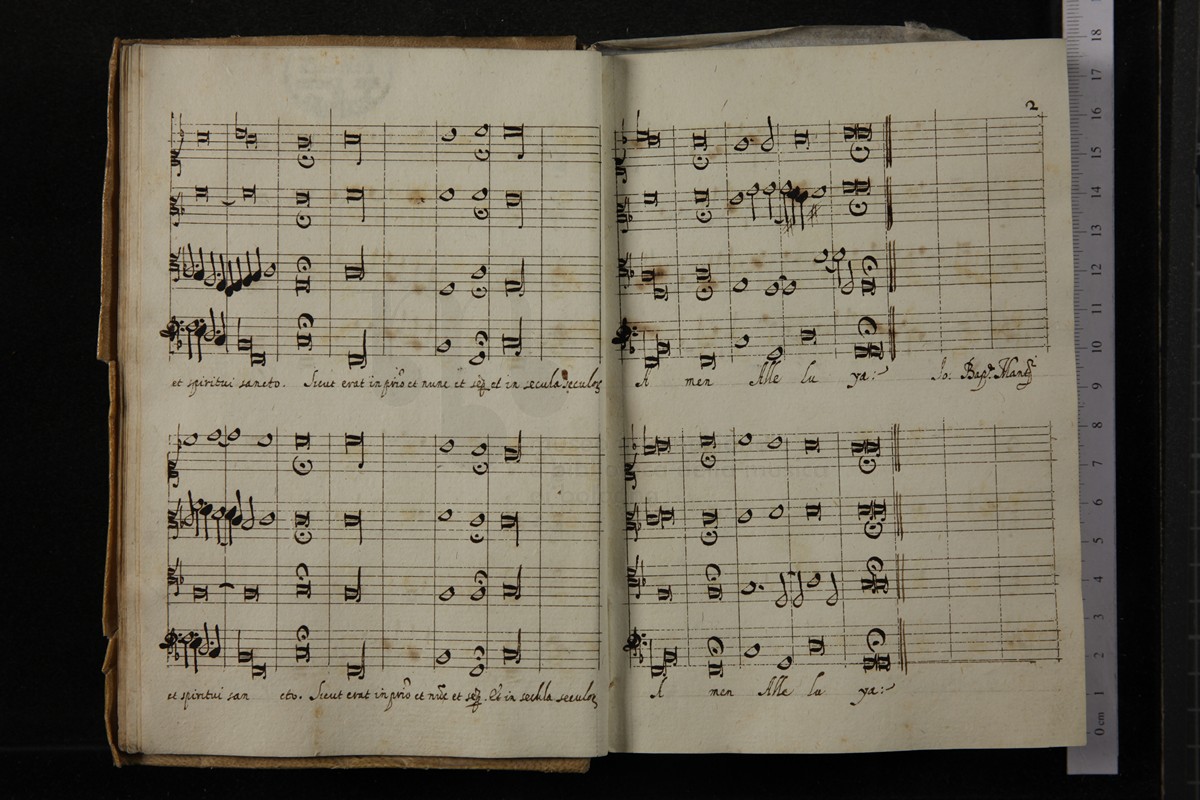 et spiritui sancto. Sicut erat in prīo et nunc et seṗ et in secula seculoꝝ
et spiritui san cto. Sicut erat in prīo et nūc et seṗ. Et in secula seculoꝝ
2
A men Alle lu ya:
Jo: Bapt. Mant.
A men Alle lu ya:
0 cm 1 2 3 4 5 6 7 8 9 10 11 12 13 14 15 16 17 18